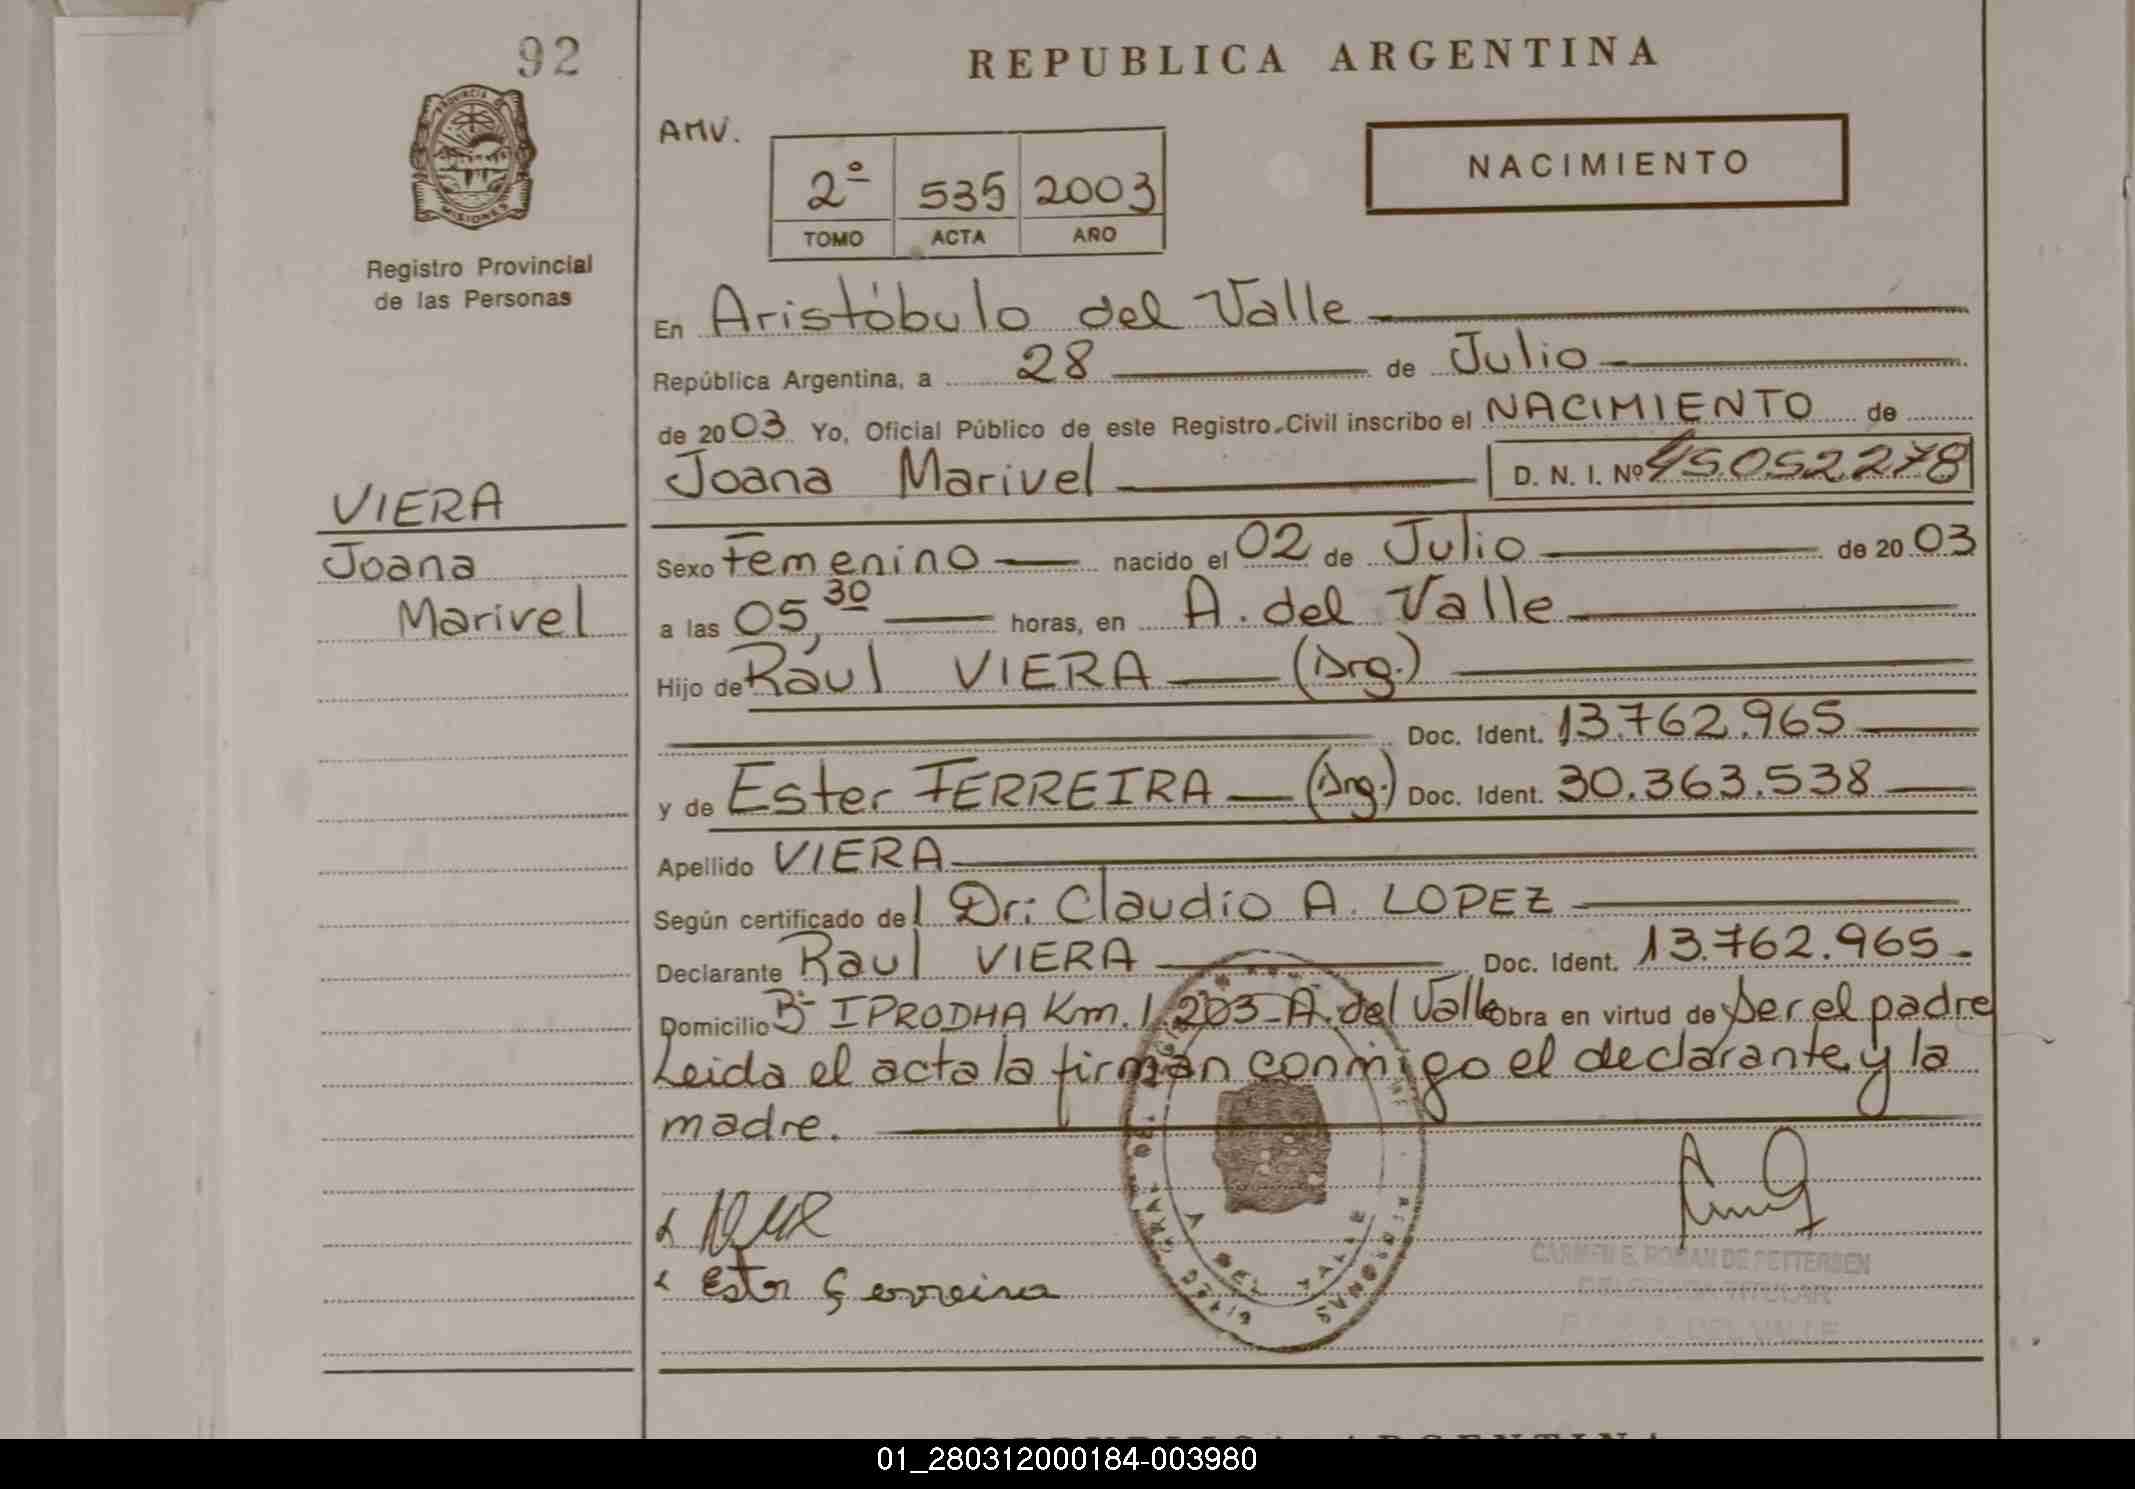 92
REPUBLICA ARGENTINA
PROVINCIA DE
MISIONES
Registro Provincial
de las Personas
AMV.
2º 535 2003
TOMO ACTA AÑO
NACIMIENTO
En Aristóbulo del Valle
República Argentina, a 28 de Julio
de 2003 Yo, Oficial Público de este Registro Civil inscribo el NACIMIENTO de
Joana Marivel D. N. I. Nº 45.052.278
VIERA
Joana
Marivel
Sexo Femenino nacido el 02 de Julio de 2003
a las 05,30 horas, en A. del Valle
Hijo de Raúl VIERA (Arg.)
Doc. Ident. 13.762.965
y de Ester FERREIRA (Arg.) Doc. Ident. 30.363.538
Apellido VIERA
Según certificado del Dr: Claudio A. LOPEZ
Declarante Raul VIERA Doc. Ident. 13.762.965.
Domicilio Bº IPRODHA Km. 1.203-A. del Valle obra en virtud de ser el padre
Leida el acta la firman conmigo el declarante y la
madre.
Ester Ferreira
A DEL VALLE
MISIONES
CARMEN E. ROMAN DE PETTERSEN
DELEGADA TITULAR
A. DEL VALLE
REPUBLICA ARGENTINA
01_280312000184-003980